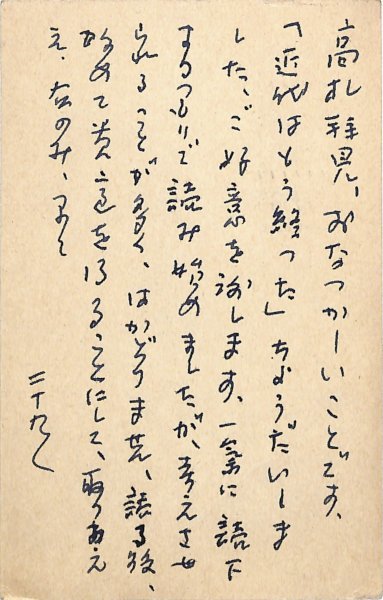 高札拝見、おなつかしいことです、
「近代はもう終った」ちょうだいしま
した、ご好意を謝します、一気に読下
するつもりで読み始めましたが、考えさせ
られることが多く、はかどりません、読了後、
改めて貴意を得ることにして、取りあえ
え、右のみ、
二十九